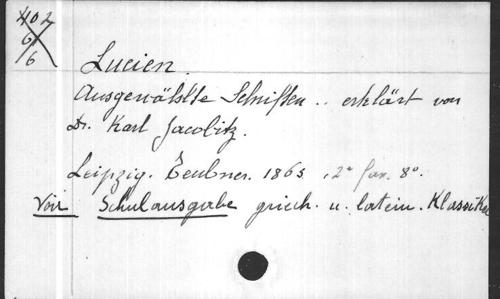 402
6
6
Lucien.
Ausgewählte Schriften .. erklärt von
Dr. Karl Jacobitz.
Leipzig. Teubner. 1865 , 2° fasc. 8°.
Voir Schulausgabe griech. u. latein. Klassiker